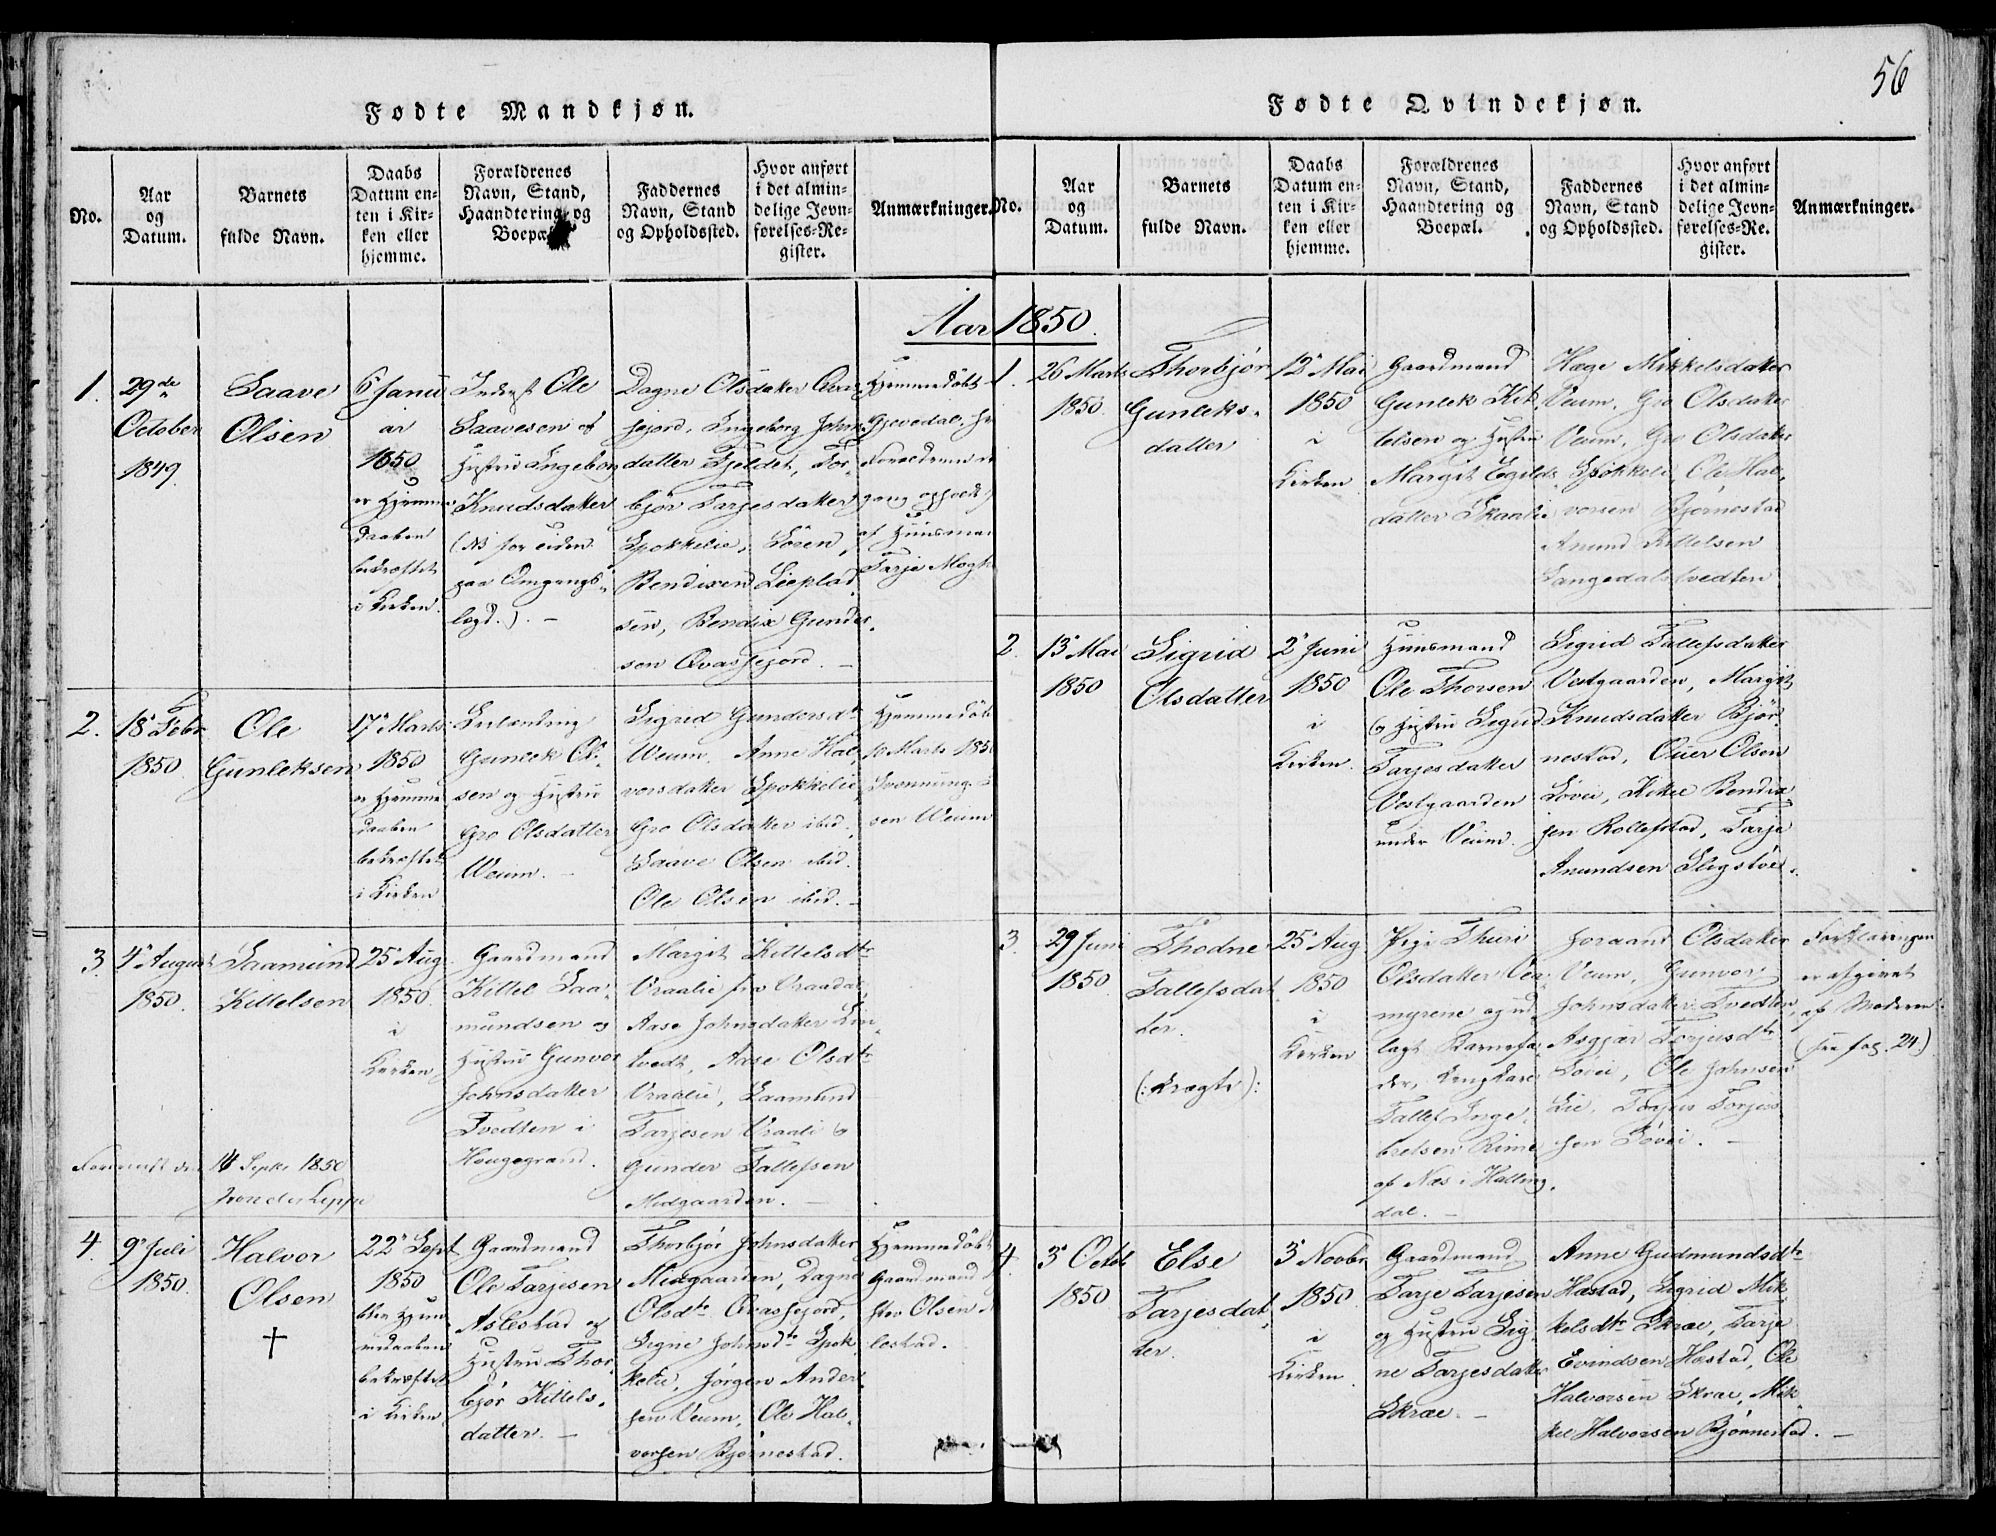 56
Fødte Mandkjøn.
No.
Aar
og
Datum.
Barnets
fulde Navn.
Daabs
Datum en-
ten i Kir-
ken eller
hjemme.
Forældrenes
Navn, Stand,
Haandtering og
Faddernes
Navn, Stand
og Opholdssted.
Hvor anført
i det almin-
delige Jevn-
førelses-Re-
gister.
Anmærkninger.
Aar 1850.
1.
29de
October
1849.
Saave
Olsen
6 Janu
ar
1850
er Hjemme
daaben
bekræftet
i Kirken.
Inderst Ole
Saavesen og
Hustru Ingeborg
Knudsdatter
(NB for tiden
paa Omgangs-
lægd.). -
Dagne Olsdatter Qvas-
fejord, Ingeborg Johns
datter Fjeldet, Tor-
bjør Tarjesdatter
Spokkelie, Søren
Bendixen Lieplad
sen, Bendix Gunder
sen Qvasfejord. -
Hjemmedøbt
Forældrene
af Huusman
Tarje
2.
18 Febr
1850.
Ole
Gunleksen
17 Marts
1850
er Hjemme
daaben
bekræftet
i Kirken
Gunlek Ol-
sen og Hustru
Gro Olsdatter
Weum. -
Sigrid Gundersdtr
Weum, Anne Hal-
vorsdatter Spokkelie
Gro Olsdatter ibid.
Saave Olsen ibid.
Ole Olsen ibid. -
Hjemmedøbt
Marts 1850
sen Weum
3.
4 August
1850.
Saamund
Kittelsen
25 Aug
1850.
i
Kirken
Gaardmand
Kittel Saa-
mundsen og
Hustru Gunvor
Johnsdatter
Tvedten i
Hougegrand.
Margit Kittelsdtr
Vraalie fra Vraadal
Aase Johnsdatter Lin-
tvedt, Aase Olsdtr
Vraalie, Saamund
Tarjesen Vraali og
Gunder Tallefsen
Midgaarden. -
14 Septbr 1850
4.
9 Juli
1850.
Halvor
Olsen
†
22 Sept
1850
blev Hjem
medaaben
bekræftet
i Kirken
Gaardmand
Ole Tarjesen
Aslestad og
Hustru Thor
bjør Kittels-
datter. -
Thorbjør Johnsdatter
Midgaarden, Dagne
Olsdtr Qvasfejord,
Signe Johnsdtr Spok
kelie, Jørgen Ander
sen Veum, Ole Hal-
vorsen Bjørnestad.
Hjemmedøbt
Gaardmand
Olsen
lestad.
Fødte Qvindekjøn.
No.
Aar
og
Datum.
Barnets
fulde Navn.
Daabs
Datum en-
ten i Kir-
ken eller
hjemme.
Forældrenes
Navn, Stand,
Haandtering og
Boepæl.
Faddernes
Navn, Stand
og Opholdssted.
Hvor anført
i det almin-
delige Jevn-
førelses-Re-
gister.
Anmærkninger.
1.
26 Marts
1850.
Thorbjør
Gunleks-
datter
12 Mai
1850
i
Kirken
Gaardmand
Gunlek Kit-
telsen og Hustru
Margit Egilds
datter Skaali
Hæge Mikkelsdatter
Veum, Gro Olsdatter
Veum, Gro Olsdatter
Spokkeli, Ole Hal-
vorsen Bjørnestad
Anund Kittelsen
Langedalstvedten
2.
13 Mai
1850
Sigrid
Olsdatter
2 Juni
1850
i
Kirken.
Huusmand
Ole Thorsen
og Hustru Sigrid
Tarjesdatter
Vestgaarden
under Veum.
Sigrid Tallefsdatter
Vestgaarden, Margit
Knudsdatter Bjør
nestad, Over Olsen
Løvei, Kittel Bendix
sen Rollefstad, Tarje
Anundsen
3.
29 Juni
1850.
Thodne
Tallefsdat
ter.
(: Uægte):
25 Aug
1850
i
Kirken
Pige Thuri
Olsdatter Vea-
myrene og ud-
lagt Barnefa-
der, Ungkarl
Tallef Inge-
bretsen Rime
af Næs i Halling
dal. -
Joraand Olsdatter
Veum, Gunvor
Johnsdatter Tvedten,
Asgjær Torjusdtr
Løvei, Ole Johnsen
Lie, Torjus Torjus-
sen Løvei. -
Forklaringen
er afgivet
af Moderen
(see pag. 24.)
4.
3 Octob
1850
Else
Tarjesdat
ter.
3 Novbr
1850.
i
Kirken.
Gaardmand
Tarje Tarjesen
og Hustru Sig-
ne Tarjesdatter
Skrae. -
Anne Gudmundsdtr
Hæstad, Sigrid Mik
kelsdtr Skrae, Tarje
Evindsen Hæstad, Ole
Halvorsen Skrae, Mik-
kel Halvorsen Bjørnestad. -